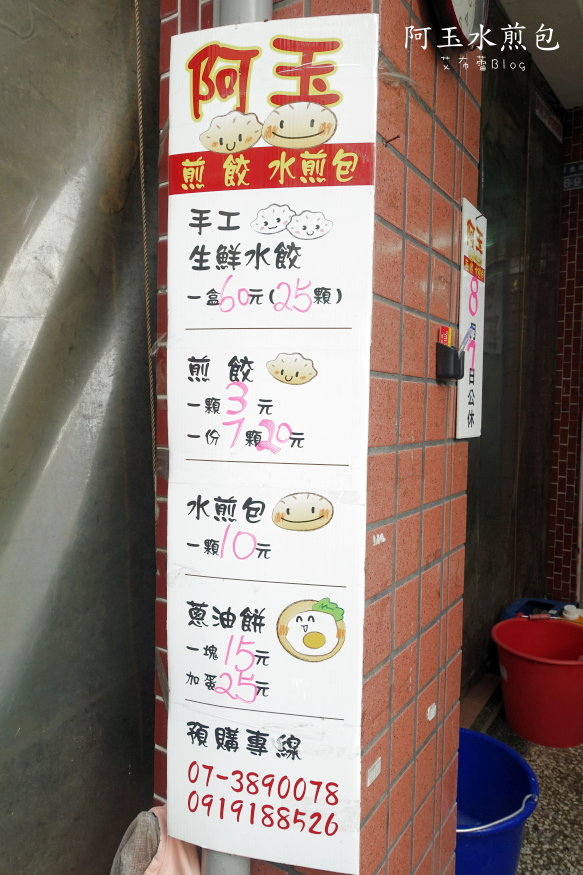 阿玉水煎包
艾布蕾Blog
阿玉
煎餃 水煎包
手工
生鮮水餃
一盒60元(25顆)
煎餃
一顆3元
一份7顆20元
水煎包
一顆10元
蔥油餅
一塊15元
加蛋25元
預購專線
07-3890078
0919188526
阿玉
8
7
日公休